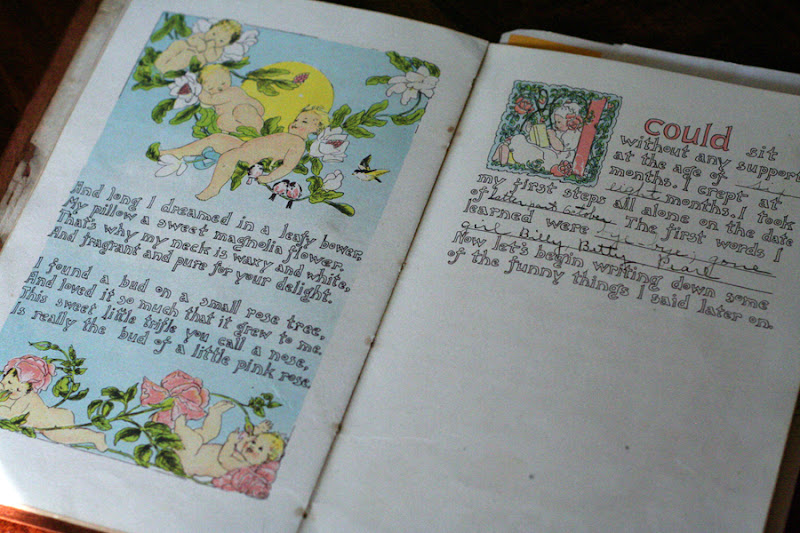 And long I dreamed in a leafy bower,
My pillow a sweet magnolia flower.
That's why my neck is waxy and white,
And fragrant and pure for your delight.
I found a bud on a small rose tree,
And loved it so much that it grew to me.
This sweet little trifle you call a nose,
Is really the bud of a little pink rose.
I could sit
without any support
at the age of six
months. I crept at
eight months. I took
my first steps all alone on the date
of latter part October The first words I
learned were bye-bye, gone
girl Billy Betty
Now let's begin writing down some
of the funny things I said later on.